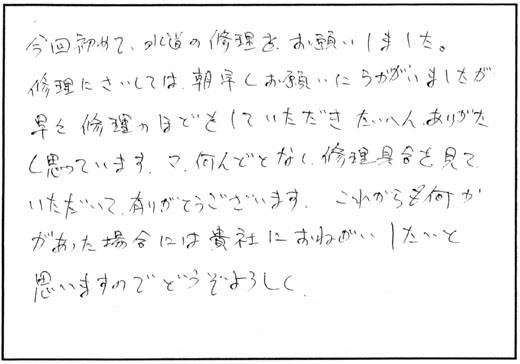 今回初めて、水道の修理を、お願いしました。
修理にさいしては、朝早くお願いにうかがいましたが
早々修理のほどをしていただき たいへん、ありがた
く思っています、マ、何んどとなく、修理具合を見て
いただいて、有りがとうございます、これからも何か
があった場合には貴社におねがいしたいと
思いますのでどうぞよろしく、